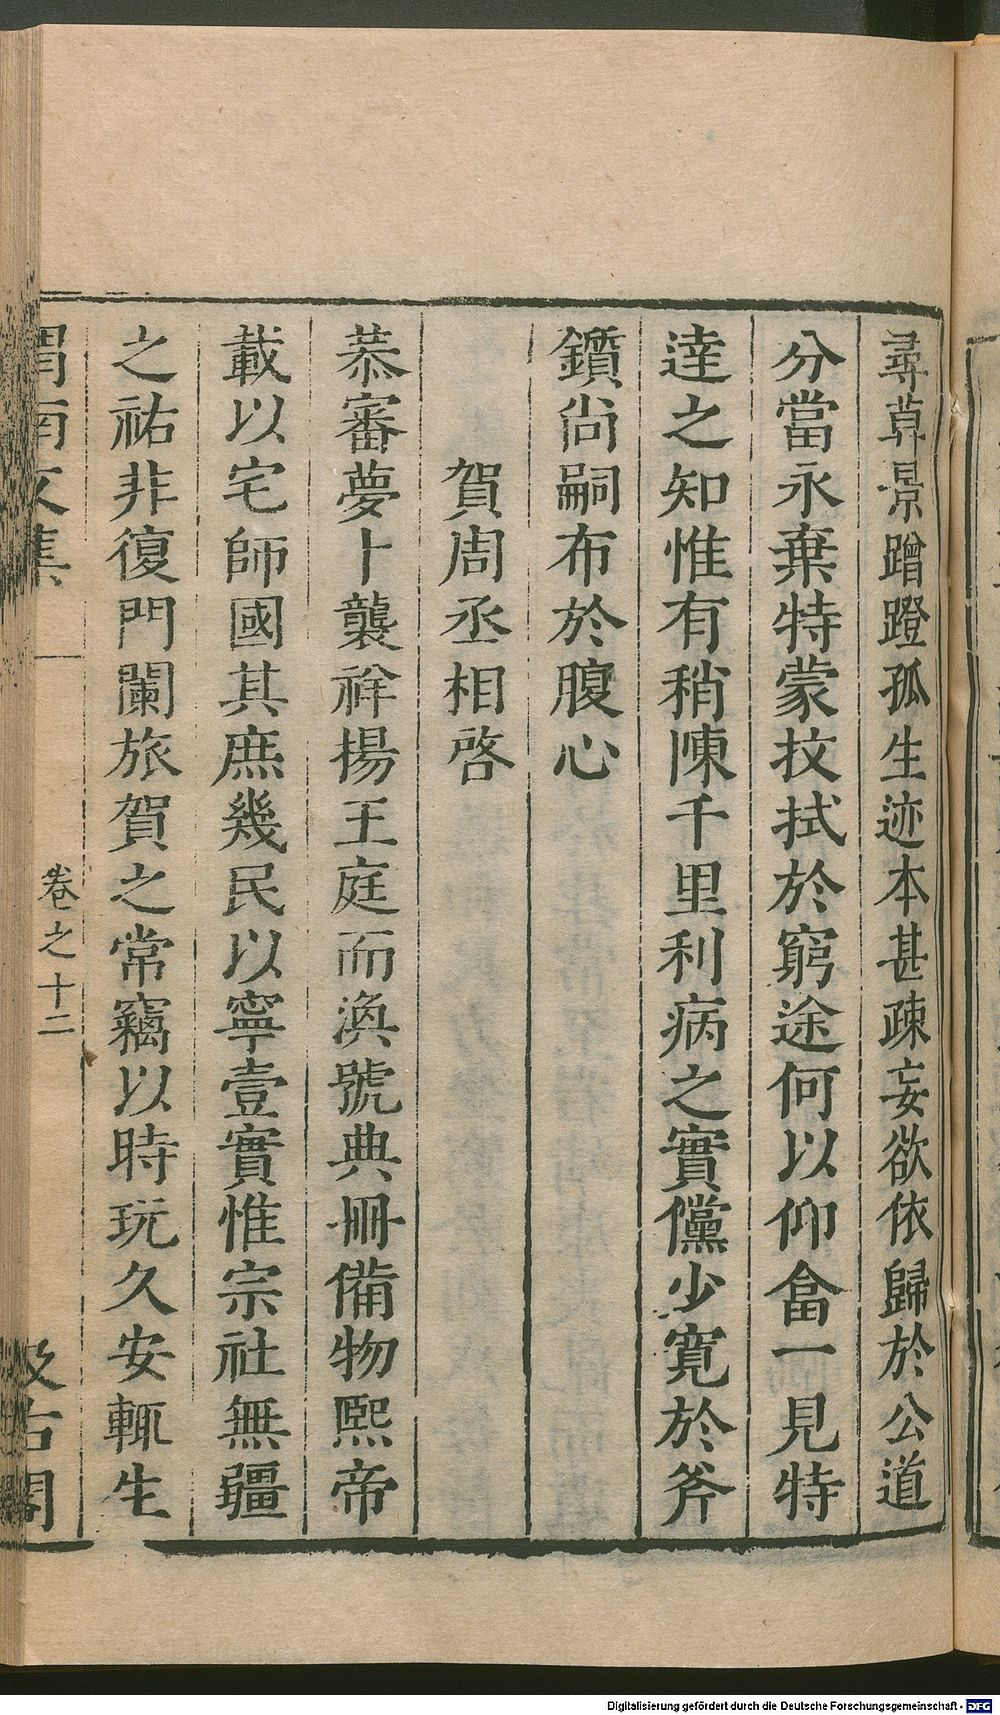 尋草景蹭蹬孤生迹本甚疎妄欲依歸於公道
分當永棄特蒙抆拭於窮途何以仰畣一見特
達之知惟有稍陳千里利病之實儻少寬於斧
鑕尚嗣布於腹心
賀周丞相啓
恭審夢卜襲祥揚王庭而渙號典冊備物熙帝
載以宅師國其庶幾民以寧壹實惟宗社無疆
之祐非復門闌旅賀之常竊以時玩久安輒生
渭南文集
卷之十二
汲古閣
Digitalisierung gefördert durch die Deutsche Forschungsgemeinschaft - DFG